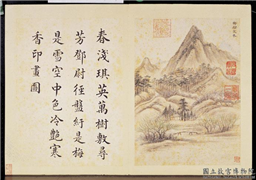 春淺琪英萬樹敷尋
芳鄧尉徑盤紆是梅
是雪空中色冷艷寒
香印畫圖
國立故宮博物院